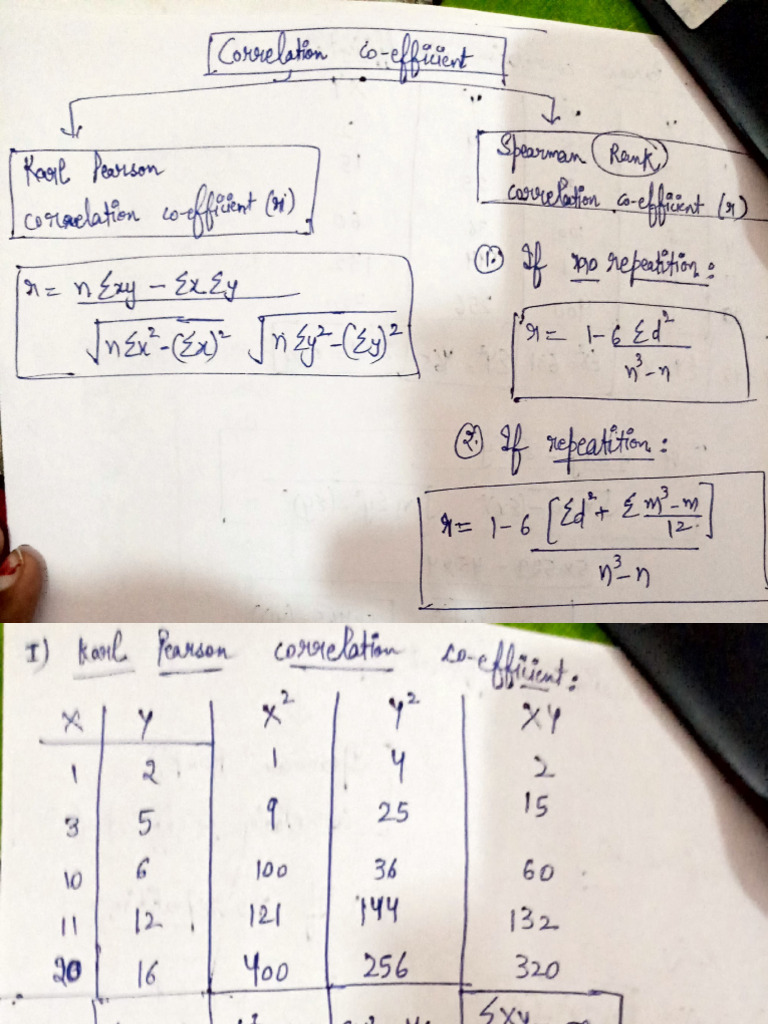 Correlation co-efficient
Karl Pearson
correlation co-efficient (r)
r = nΣxy - Σx Σy
√nΣx² - (Σx)² √nΣy² - (Σy)²
Spearman Rank
correlation co-efficient (r)
1. If no repeatition :
r = 1 - 6 Σd²
n³ - n
2. If repeatition :
r = 1 - 6 [Σd² + Σ m³ - m
12]
n³ - n
I) Karl Pearson correlation co-efficient :
X Y X² Y² XY
1 2 1 4 2
3 5 9 25 15
10 6 100 36 60
11 12 121 144 132
20 16 400 256 320
ΣXY